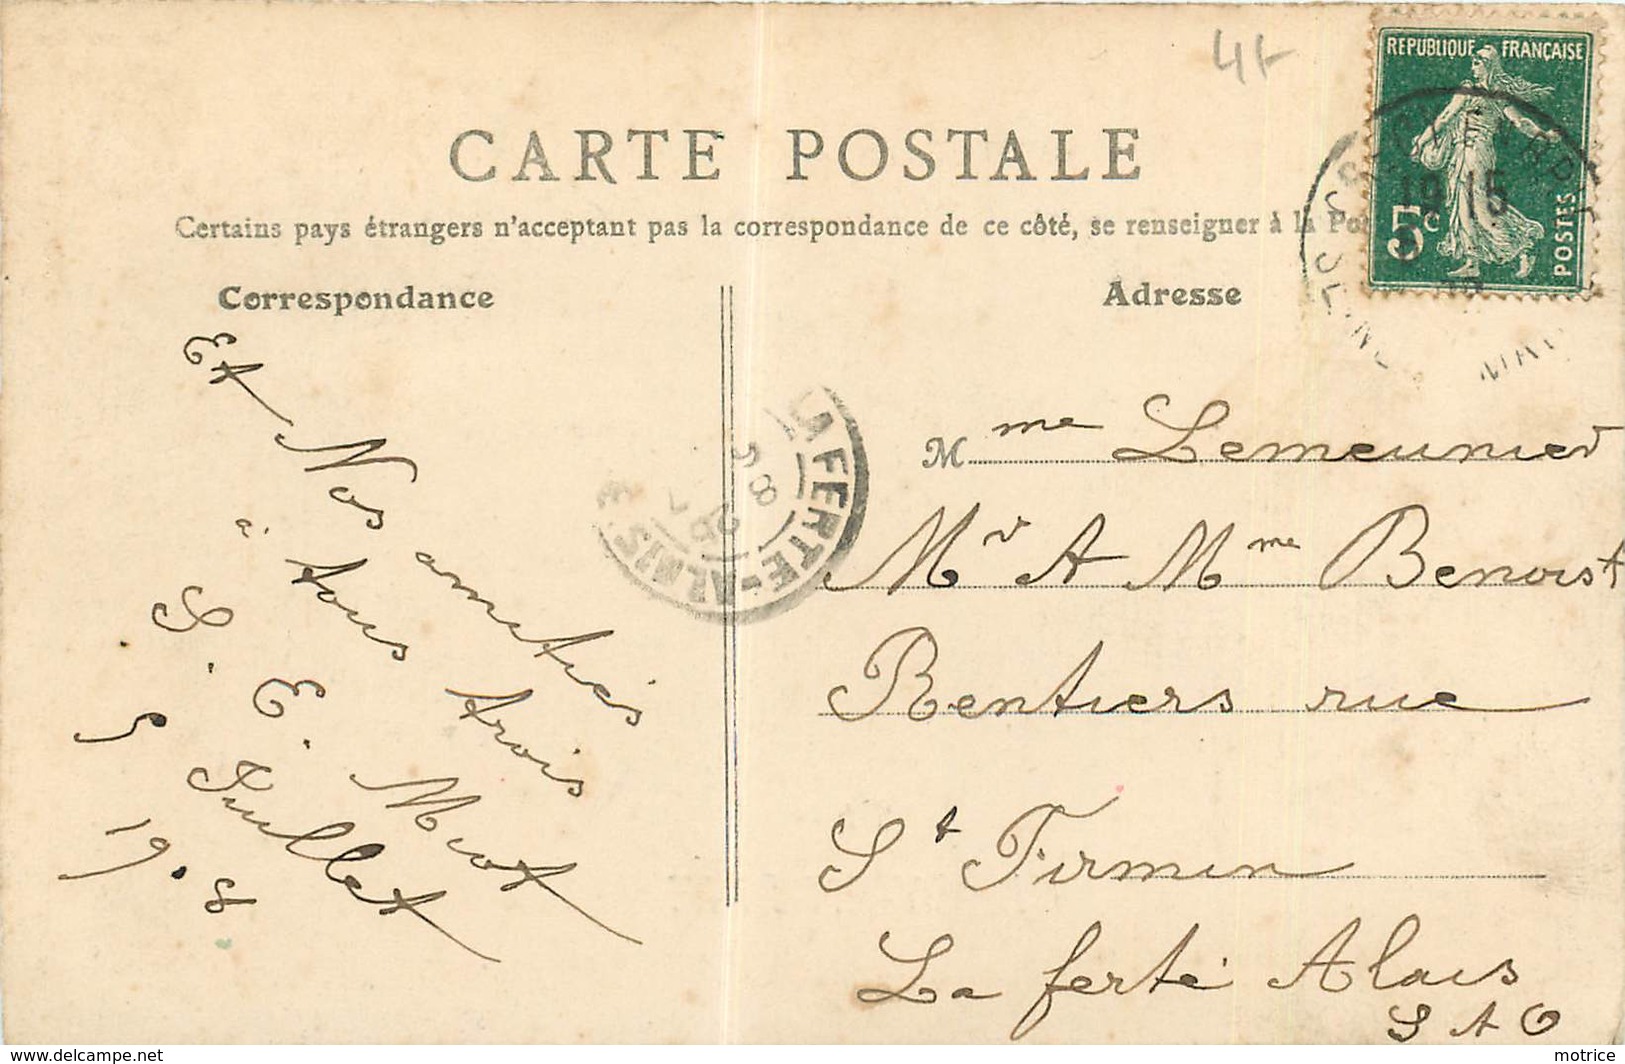 4F
REPUBLIQUE FRANÇAISE
5c
POSTES
19 15
CARTE POSTALE
Certains pays étrangers n'acceptant pas la correspondance de ce côté, se renseigner à la
Correspondance
Adresse
Et Nos amitiés
à tous trois
S. E. Miot
5 Juillet
1908
LA FERTE-ALAIS
Mme Lemeunier
Mr A Mme Benoist
Rentiers rue
St Firmin
La ferté Alais
S A O
http://www.delcampe.net
motrice